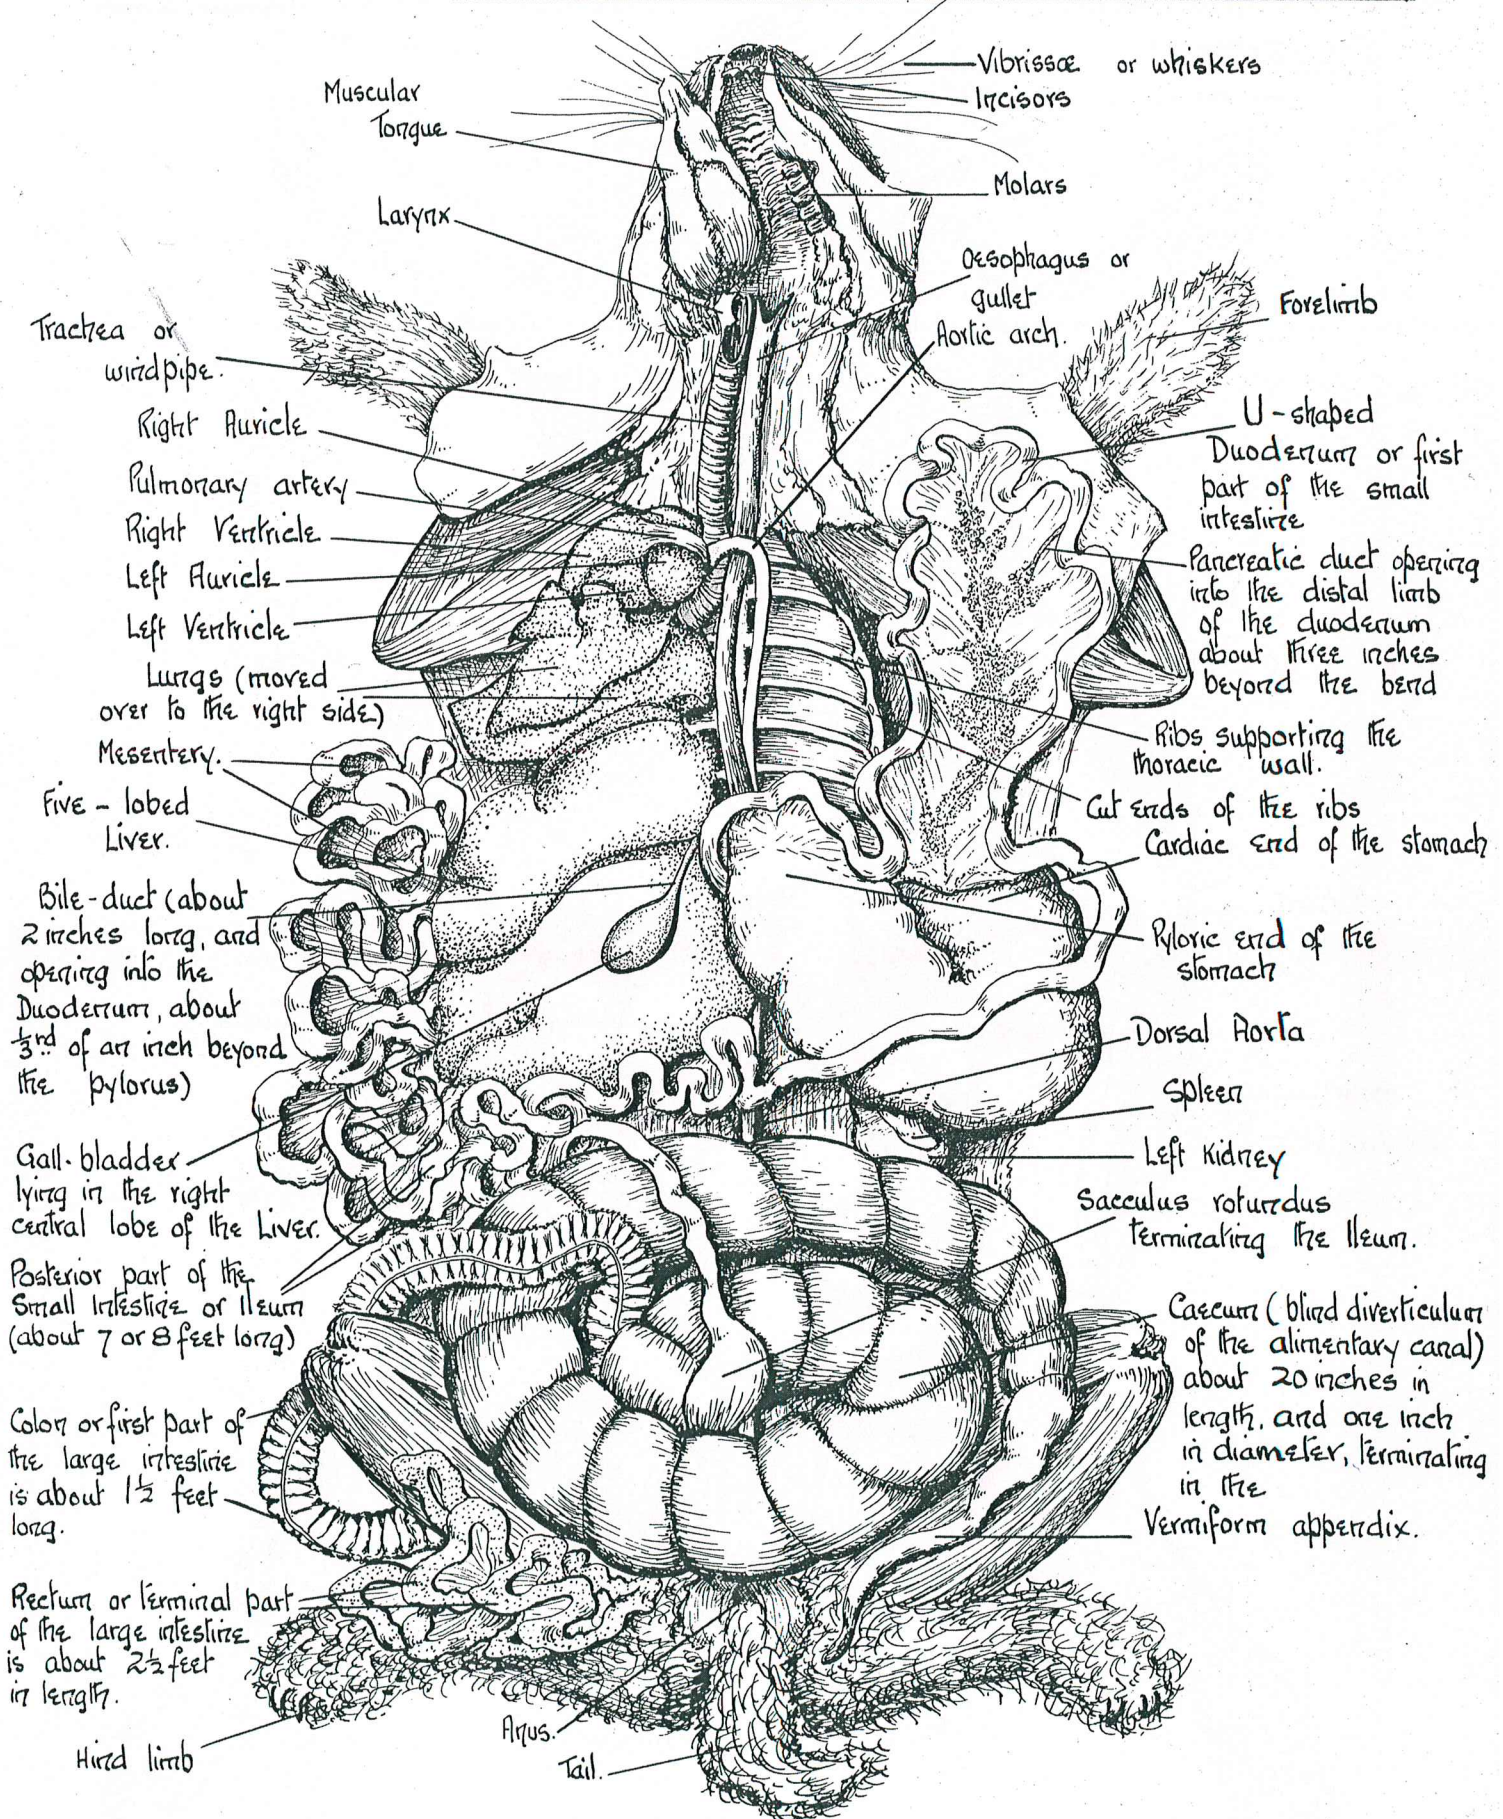 Muscular
Tongue
Larynx
Trachea or
windpipe.
Right Auricle
Pulmonary artery
Right Ventricle
Left Auricle
Left Ventricle
Lungs (moved
over to the right side)
Mesentery.
Five-lobed
Liver.
Bile-duct (about
2 inches long, and
opening into the
Duodenum, about
⅓rd of an inch beyond
the pylorus)
Gall-bladder
lying in the right
central lobe of the Liver.
Posterior part of the
Small Intestine or Ileum
(about 7 or 8 feet long)
Colon or first part of
the large intestine
is about 1½ feet
long.
Rectum or terminal part
of the large intestine
is about 2½ feet
in length.
Hind limb
Anus.
Tail.
Vibrissæ or whiskers
Incisors
Molars
Oesophagus or
gullet
Aortic arch.
Forelimb
U-shaped
Duodenum or first
part of the small
intestine
Pancreatic duct opening
into the distal limb
of the duodenum
about three inches
beyond the bend
Ribs supporting the
thoracic wall.
Cut ends of the ribs
Cardiac end of the stomach
Pyloric end of the
stomach
Dorsal Aorta
Spleen
Left Kidney
Sacculus rotundus
terminating the Ileum.
Caecum (blind diverticulum
of the alimentary canal)
about 20 inches in
length, and one inch
in diameter, terminating
in the
Vermiform appendix.